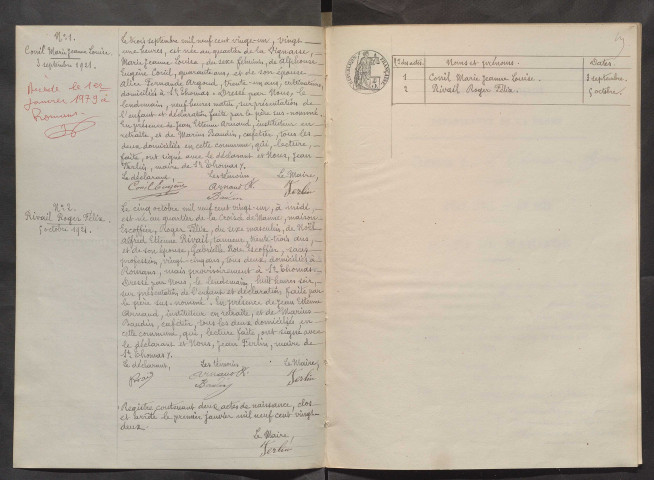 N° 1.
Coril Marie Jeanne Louise
3 septembre 1921.
Décédé le 1er
janvier 1979 à
Romans
Le trois septembre mil neuf cent vingt-un, vingt-
une heures, est née au quartier de la
Marie Jeanne Louise, du sexe féminin, de Alphonse
Eugène Coril, quarante ans et de son épouse
Alice Fernande Argoud, trente ans, cultivateurs
domiciliés à St Thomas. Dressé par Nous, le
lendemain, neuf heures matin, sur présentation de
l'enfant et déclaration faite par le père sus-nommé.
En présence de Jean Etienne Arnaud, instituteur en
retraite, et de Marius Baudin, cafetier, tous les
deux domiciliés en cette commune, qui, lecture
faite, ont signé avec le déclarant et Nous, Jean
Ferlin, maire de St Thomas.
Le déclarant, Les témoins Le Maire,
Coril Eugène Arnaud Ferlin
Baudin
N° 2.
Rivail Roger Félix.
5 octobre 1921.
Le cinq octobre mil neuf cent vingt-un, à midi
est né au quartier de la Croix de maison
Escoffier, Roger Félix, du sexe masculin, de Noël
Alfred Etienne Rivail, tanneur, trente-trois ans,
et de son épouse, Gabrielle Rose Escoffier, sans
profession, vingt-cinq ans, tous deux domiciliés à
Romans, mais provisoirement à St Thomas.
Dressé par Nous, le lendemain, huit heures soir,
sur présentation de l'enfant et déclaration faite par
le père sus-nommé. En présence de Jean Etienne
Arnaud, instituteur en retraite, et de Marius
Baudin, cafetier, tous les deux domiciliés en
cette commune, qui, lecture faite, ont signé avec
le déclarant et Nous, Jean Ferlin, maire de
St Thomas.
Le déclarant, Les témoins Le Maire,
Arnaud Ferlin
Baudin
Registre contenant deux actes de naissance, clos
et arrêté le premier janvier mil neuf cent vingt-
deux.
Le Maire,
Ferlin
N° des actes. Noms et prénoms. Dates.
1 Coril Marie Jeanne Louise. 3 septembre.
2 Rivail Roger Félix. 5 octobre.